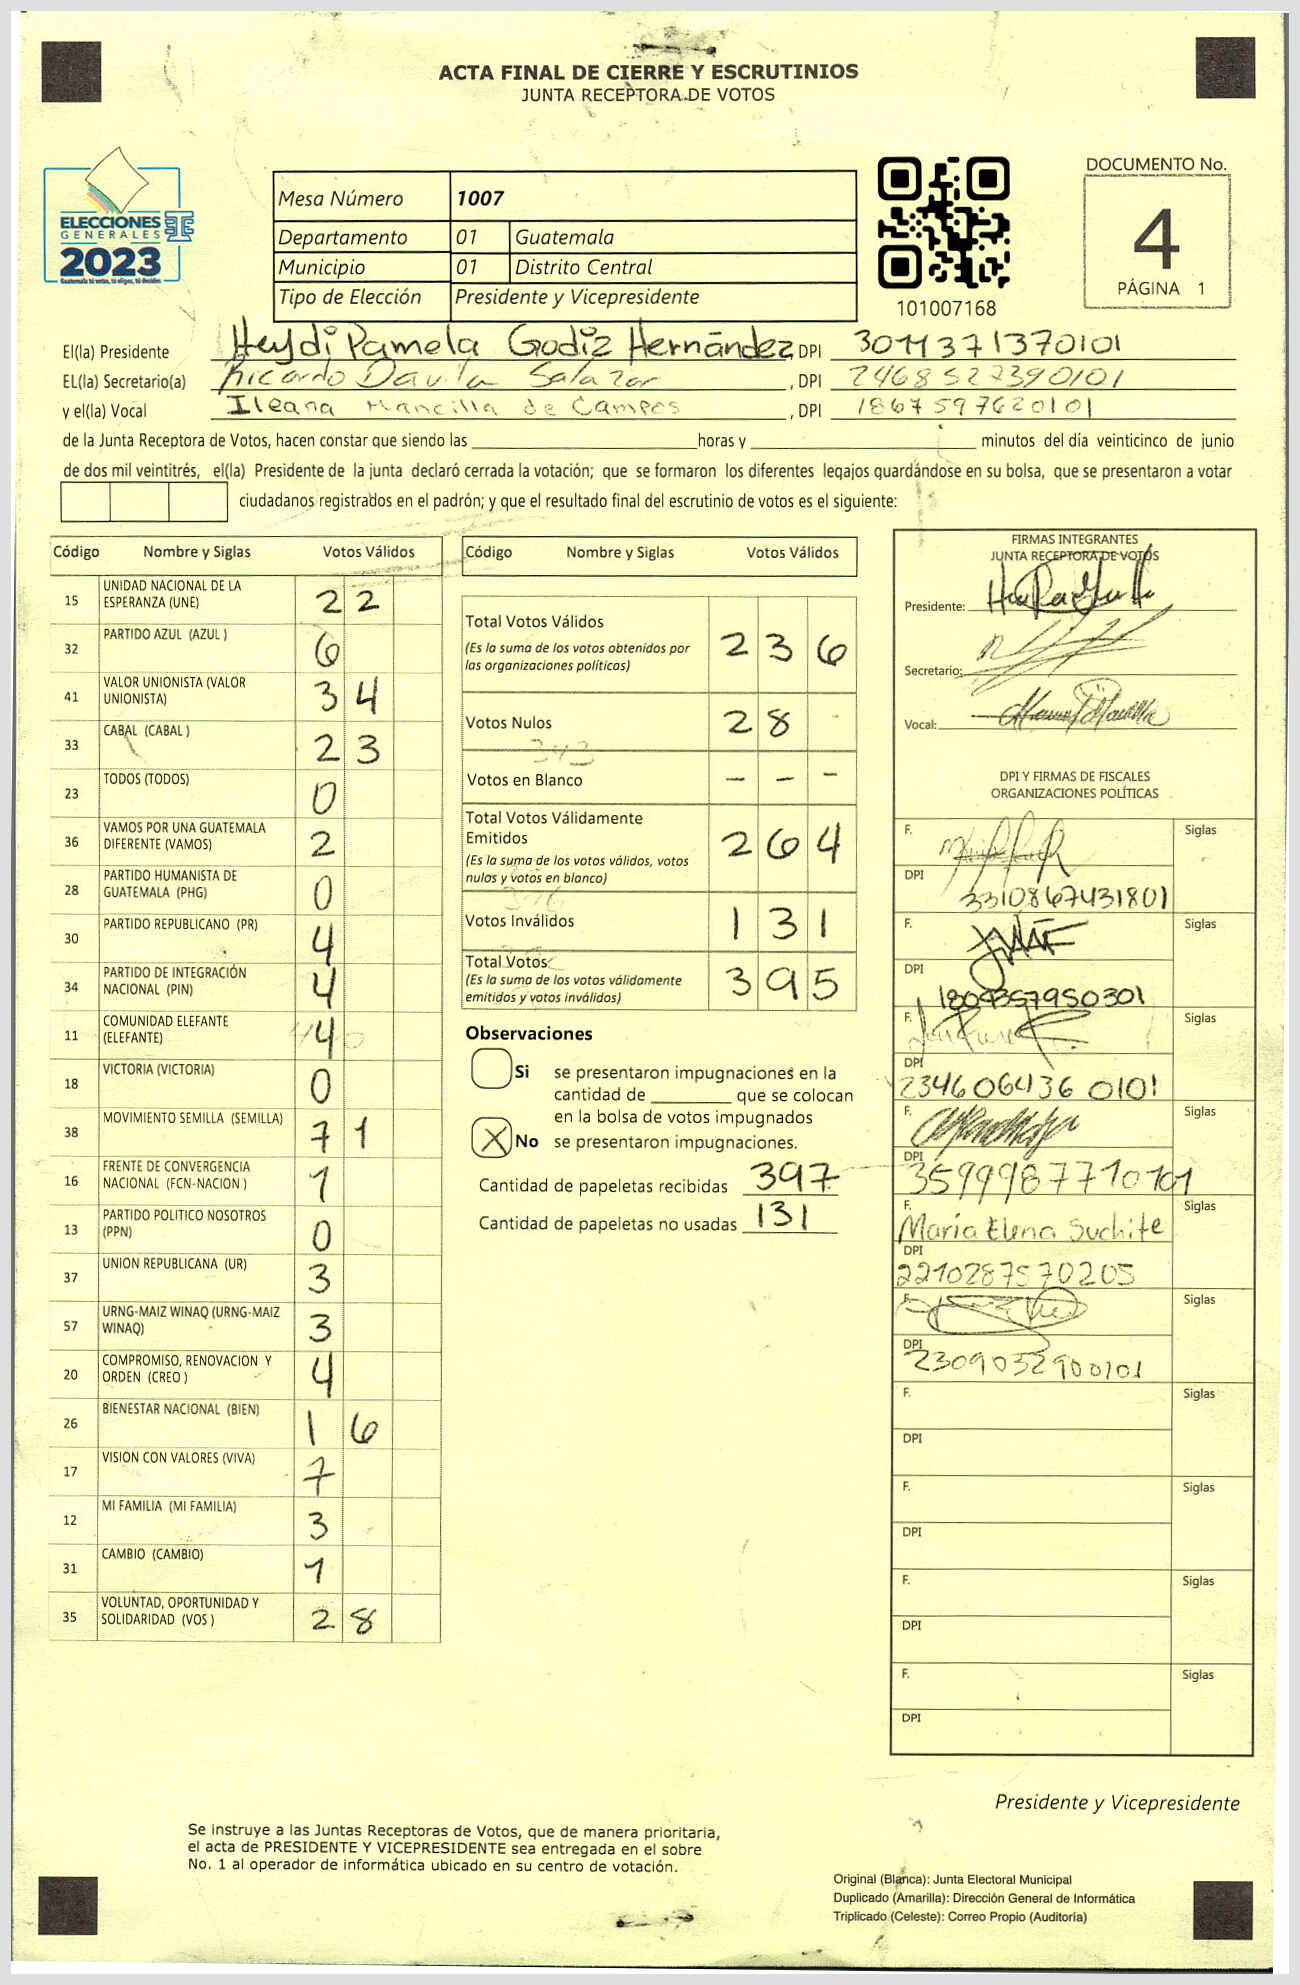 ACTA FINAL DE CIERRE Y ESCRUTINIOS
JUNTA RECEPTORA DE VOTOS
ELECCIONES
GENERALES
2023
Guatemala tú votas, tú eliges, tú decides
Mesa Número 1007
Departamento 01 Guatemala
Municipio 01 Distrito Central
Tipo de Elección Presidente y Vicepresidente
101007168
DOCUMENTO No.
4
PÁGINA 1
El(la) Presidente Heydi Pamela Godiz Hernández, DPI 3011371370101
EL(la) Secretario(a) Ricardo Davila Salazar, DPI 2468527390101
y el(la) Vocal Ileana Mancilla de Campos, DPI 1867597620101
de la Junta Receptora de Votos, hacen constar que siendo las horas y minutos del día veinticinco de junio
de dos mil veintitrés, el(la) Presidente de la junta declaró cerrada la votación; que se formaron los diferentes legajos quardándose en su bolsa, que se presentaron a votar
ciudadanos registrados en el padrón; y que el resultado final del escrutinio de votos es el siguiente:
Código Nombre y Siglas Votos Válidos
15 UNIDAD NACIONAL DE LA ESPERANZA (UNE) 22
32 PARTIDO AZUL (AZUL ) 6
41 VALOR UNIONISTA (VALOR UNIONISTA) 34
33 CABAL (CABAL ) 23
23 TODOS (TODOS) 0
36 VAMOS POR UNA GUATEMALA DIFERENTE (VAMOS) 2
28 PARTIDO HUMANISTA DE GUATEMALA (PHG) 0
30 PARTIDO REPUBLICANO (PR) 4
34 PARTIDO DE INTEGRACIÓN NACIONAL (PIN) 4
11 COMUNIDAD ELEFANTE (ELEFANTE) 4
18 VICTORIA (VICTORIA) 0
38 MOVIMIENTO SEMILLA (SEMILLA) 71
16 FRENTE DE CONVERGENCIA NACIONAL (FCN-NACION ) 1
13 PARTIDO POLITICO NOSOTROS (PPN) 0
37 UNION REPUBLICANA (UR) 3
57 URNG-MAIZ WINAQ (URNG-MAIZ WINAQ) 3
20 COMPROMISO, RENOVACION Y ORDEN (CREO ) 4
26 BIENESTAR NACIONAL (BIEN) 16
17 VISION CON VALORES (VIVA) 7
12 MI FAMILIA (MI FAMILIA) 3
31 CAMBIO (CAMBIO) 1
35 VOLUNTAD, OPORTUNIDAD Y SOLIDARIDAD (VOS ) 28
Código Nombre y Siglas Votos Válidos
Total Votos Válidos 236
(Es la suma de los votos obtenidos por
las organizaciones políticas)
Votos Nulos 28
Votos en Blanco - - -
Total Votos Válidamente
Emitidos 264
(Es la suma de los votos válidos, votos
nulos y votos en blanco)
Votos Inválidos 131
Total Votos 395
(Es la suma de los votos válidamente
emitidos y votos inválidos)
Observaciones
Si se presentaron impugnaciones en la
cantidad de que se colocan
en la bolsa de votos impugnados
X No se presentaron impugnaciones.
Cantidad de papeletas recibidas 397
Cantidad de papeletas no usadas 131
FIRMAS INTEGRANTES
JUNTA RECEPTORA DE VOTOS
Presidente:
Secretario:
Vocal:
DPI Y FIRMAS DE FISCALES
ORGANIZACIONES POLÍTICAS
F. Siglas
DPI 3310867431801
F. Siglas
DPI
F. Siglas
DPI 2346064360101
F. Siglas
DPI 3599987710101
F. María Elena Suchite Siglas
DPI 2210287570205
F. Siglas
DPI 2309032900101
F. Siglas
DPI
F. Siglas
DPI
F. Siglas
DPI
F. Siglas
DPI
Presidente y Vicepresidente
Se instruye a las Juntas Receptoras de Votos, que de manera prioritaria,
el acta de PRESIDENTE Y VICEPRESIDENTE sea entregada en el sobre
No. 1 al operador de informática ubicado en su centro de votación.
Original (Blanca): Junta Electoral Municipal
Duplicado (Amarilla): Dirección General de Informática
Triplicado (Celeste): Correo Propio (Auditoría)